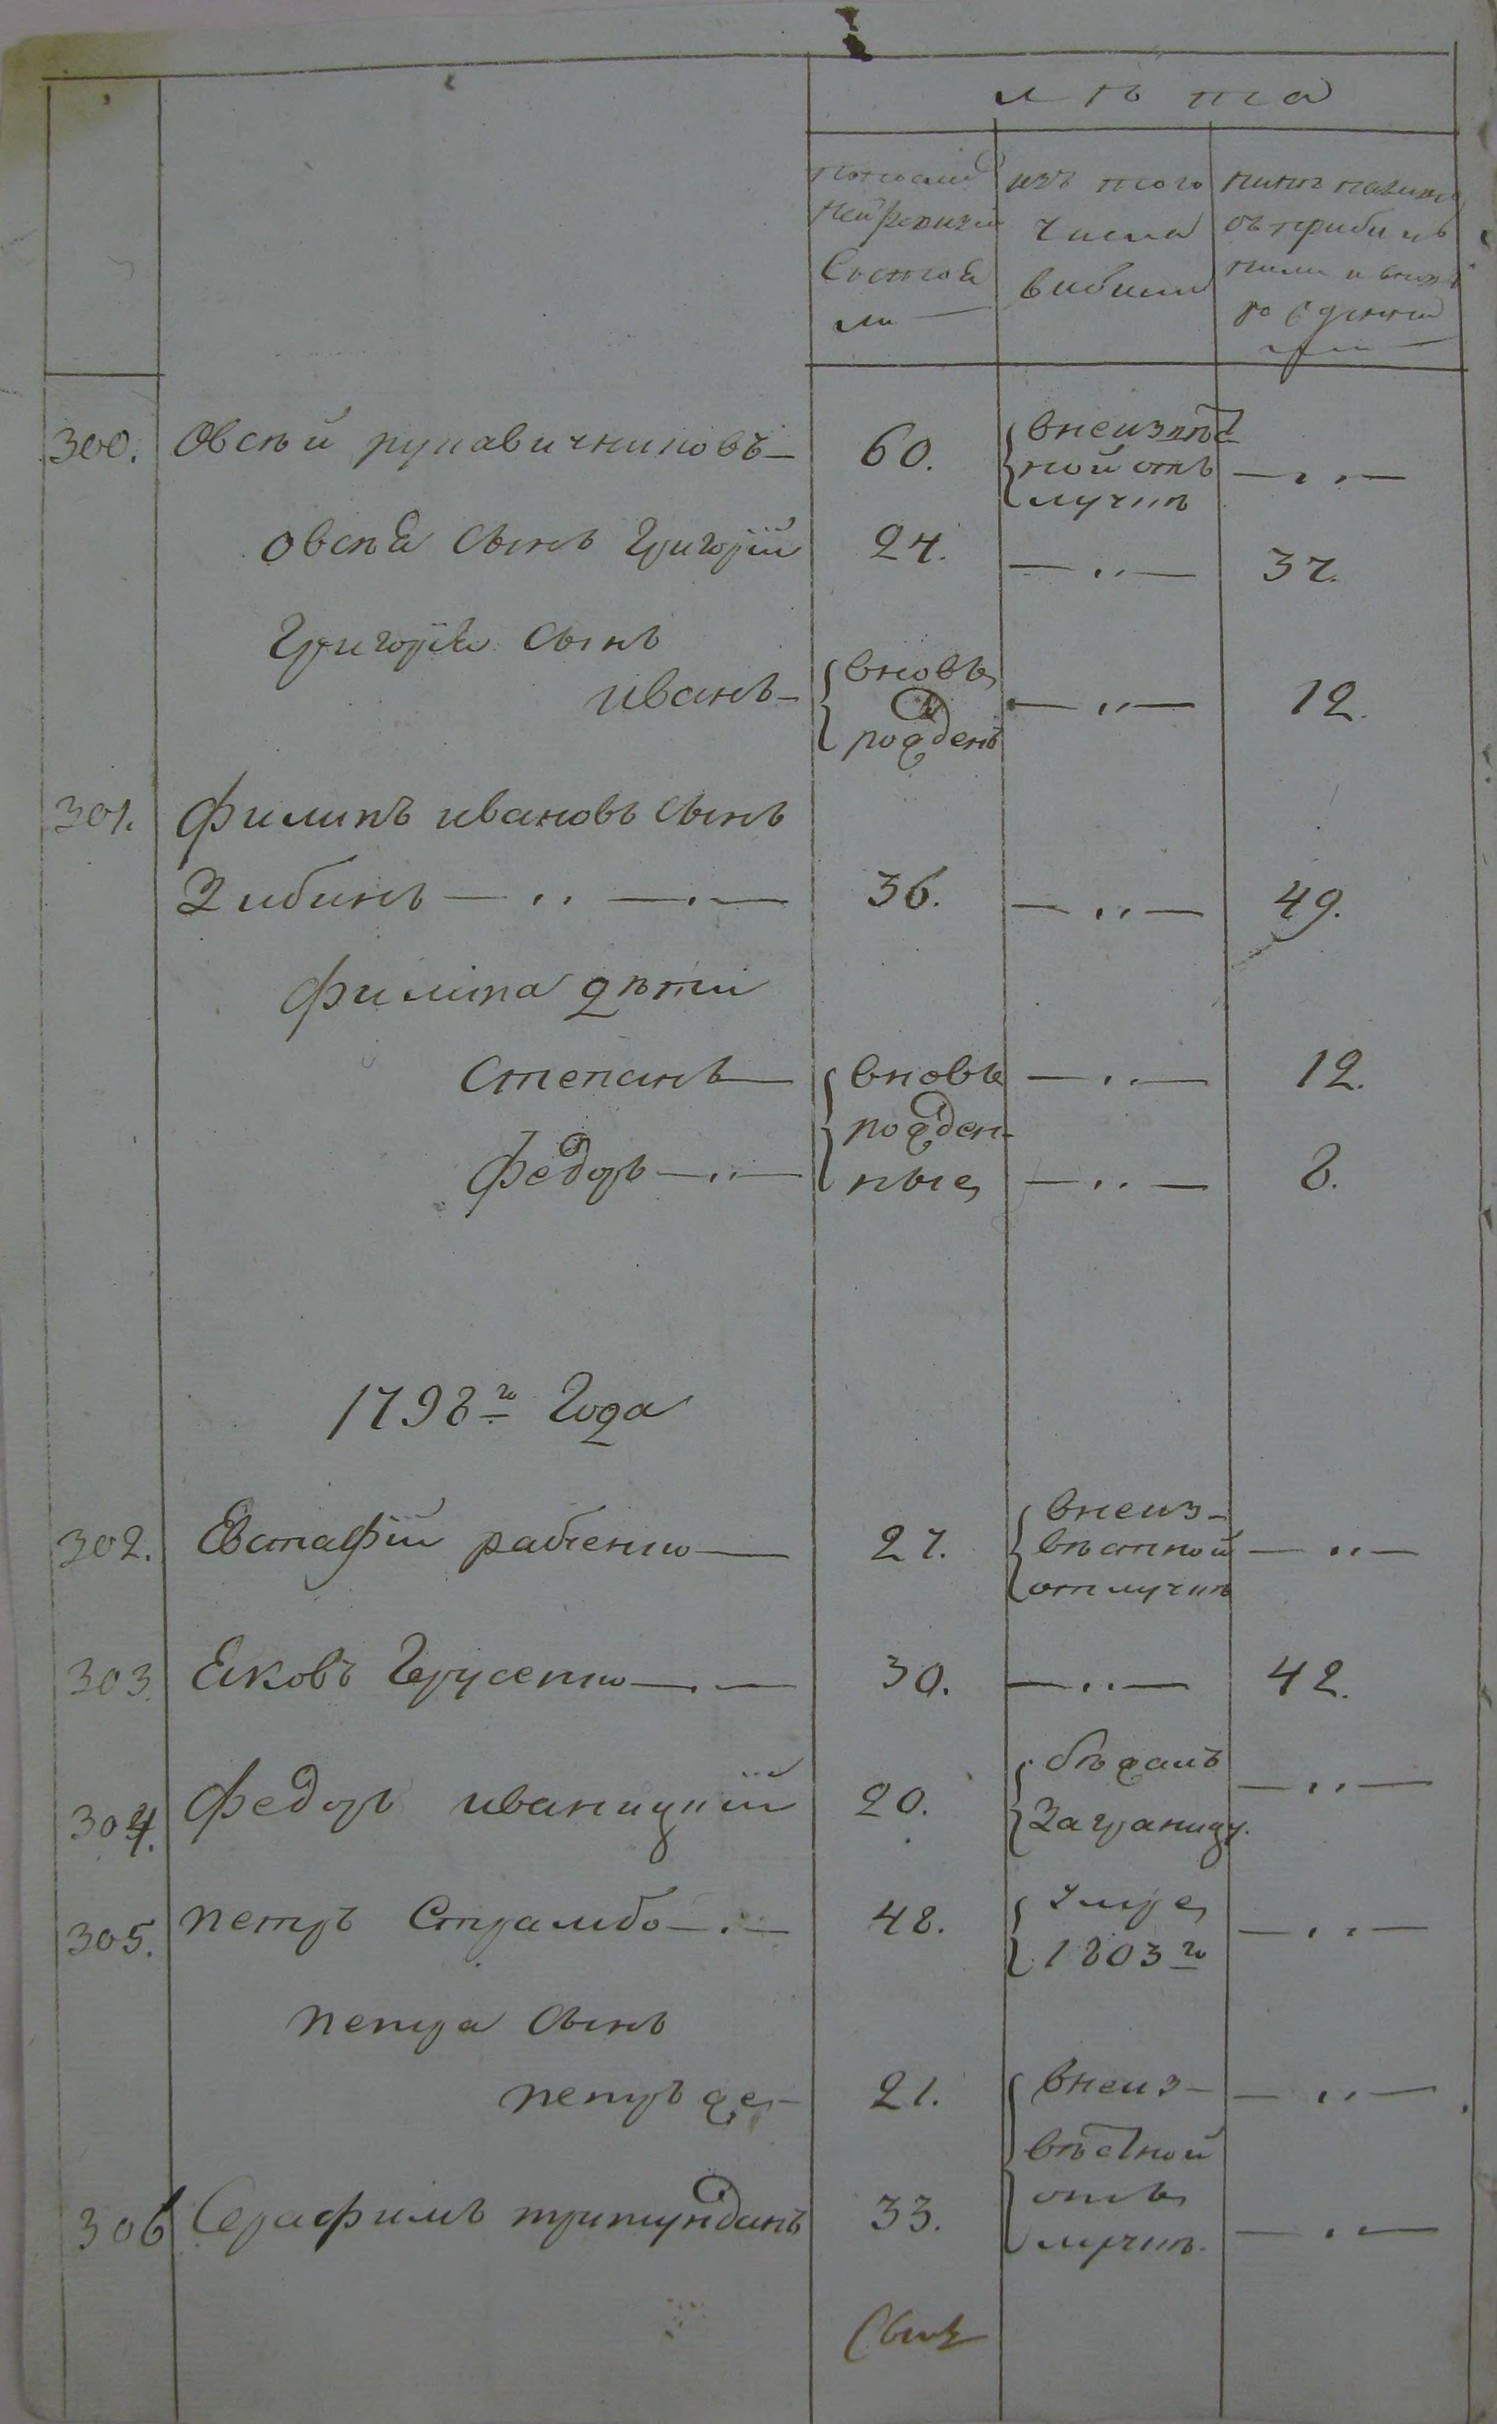 лѣта
по послѣд
ней ревизіи
состоя
ли
изъ того
числа
выбыли
нынѣ налицо
съ прибыв
шими и вновь
рожденны
ми
300. Овсѣй рукавичниковъ 60. внеизвѣст
ной от
лучкѣ
овсѣя сынъ Григорій 24. 37.
Григорія сынъ
иванъ вновь рожденъ 12.
301. Филипъ ивановъ сынъ
Зибинъ 36. 49.
Филипа дѣти
Степанъ вновь 12.
рожден-
Федоръ ные 8.
1798го Года
302. Евстафій рабченко 27. внеиз-
вѣстной
отлучкѣ
303. Яковъ 30. 42.
304. Федоръ иваницкій 20. бѣжалъ
Заграницу.
305. петръ Страмбо 48. умре
1803го
петра сынъ
петръ же 21. внеиз-
вѣстной
306 Серафимъ 33. отъ
лучкѣ.